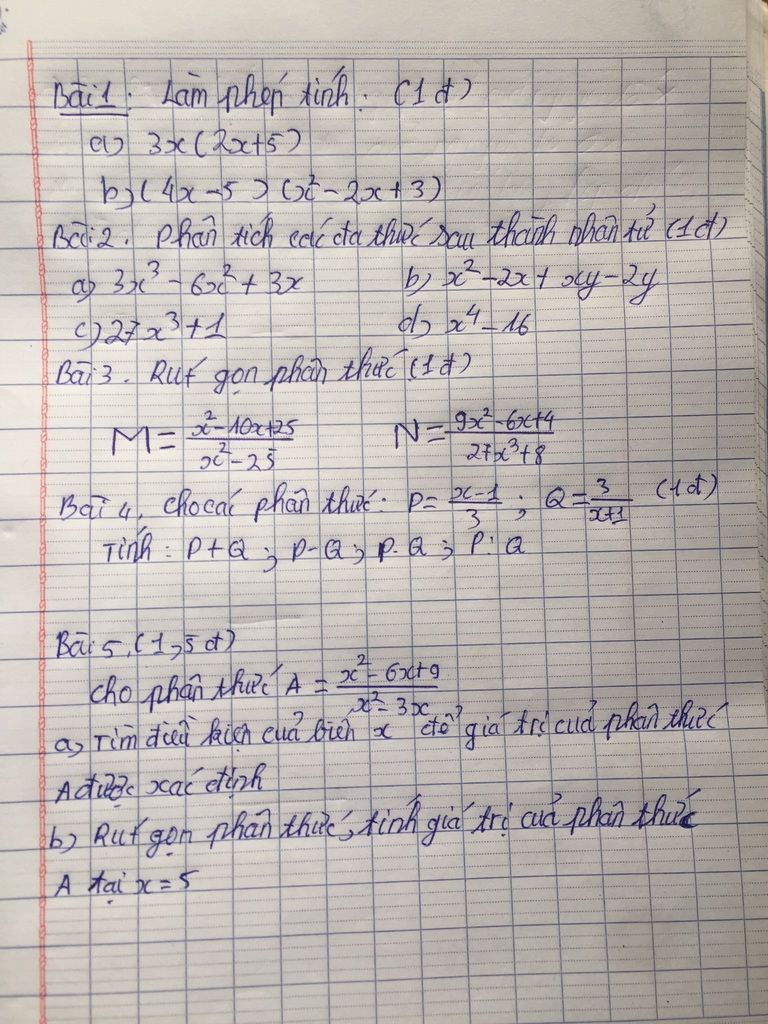 Bài 1: Làm phép tính: (1đ)
a) 3x(2x+5)
b) (4x-5)(x²-2x+3)
Bài 2. Phân tích các đa thức sau thành nhân tử (1đ)
a) 3x³-6x²+3x b) x²-2x+xy-2y
c) 27x³+1 d) x⁴-16
Bài 3. Rút gọn phân thức (1đ)
M = (x²-10x+25)/(x²-25) N = (9x²-6x+4)/(27x³+8)
Bài 4, cho các phân thức: P = (x-1)/3 ; Q = 3/(x+1) (1đ)
Tính: P+Q ; P-Q ; P.Q ; P:Q
Bài 5, (1,5đ)
cho phân thức A = (x²-6x+9)/(x²-3x)
a, Tìm điều kiện của biến x để giá trị của phân thức
A được xác định
b) Rút gọn phân thức, tính giá trị của phân thức
A tại x=5